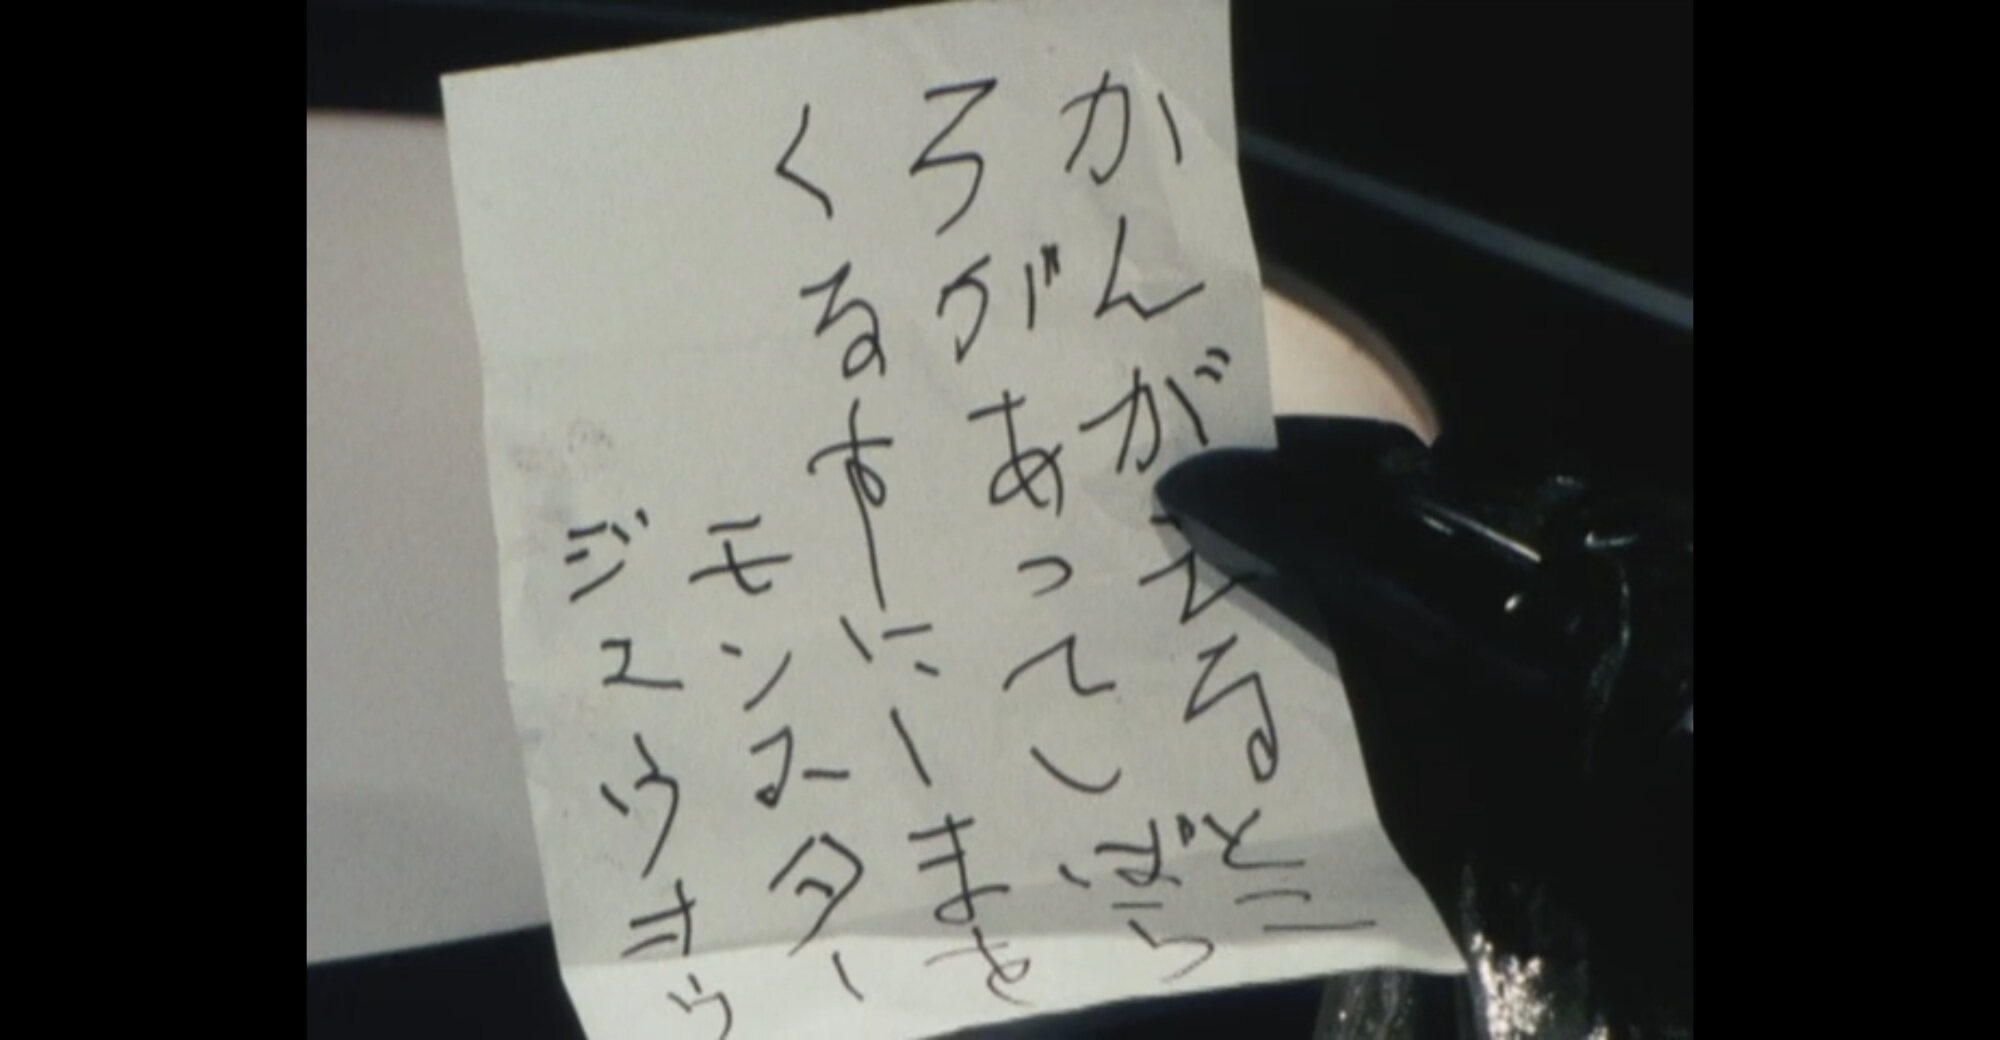 かんがえるとこ
ろがあってしばら
くるすにします
モンスター
ジュウオウ